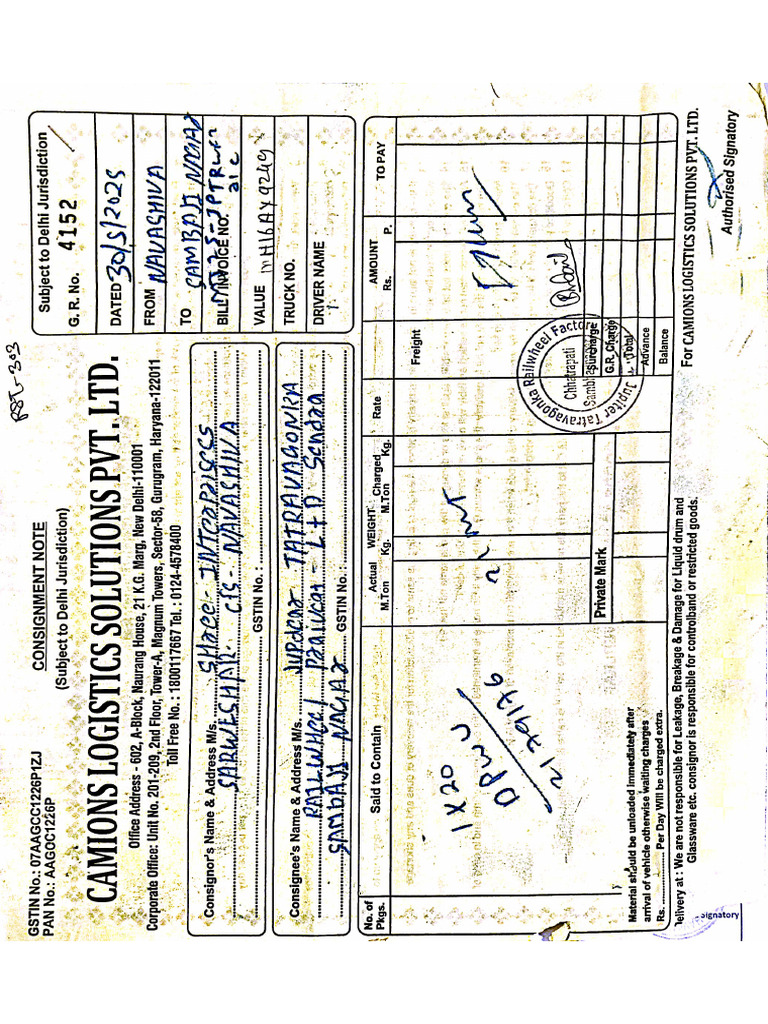 RST-303
GSTIN No.: 07AAGCC1226P1ZJ
PAN No.: AAGCC1226P
CONSIGNMENT NOTE
(Subject to Delhi Jurisdiction)
CAMIONS LOGISTICS SOLUTIONS PVT. LTD.
Office Address - 602, A-Block, Naurang House, 21 K.G. Marg, New Delhi-110001
Corporate Office: Unit No. 201-209, 2nd Floor, Tower-A, Magnum Towers, Sector-58, Gurugram, Haryana-122011
Toll Free No. : 1800117667 Tel. : 0124-4578400
Subject to Delhi Jurisdiction
G. R. No. 4152
DATED 30/5/2025
FROM NAVASHIVA
TO SAMBAJI NAGAR
BILL / INVOICE NO.
VALUE
TRUCK NO. MH16AY9249
DRIVER NAME
Consignor's Name & Address M/s.
SARWESHAR CFS - NAVASHIVA
GSTIN No. :
Consignee's Name & Address M/s. JUPITER TATRAVAGONKA
RAILWHEEL
SAMBAJI NAGAR GSTIN No. :
No. of Pkgs.
Said to Contain
Actual M.Ton
WEIGHT Kg.
Charged M.Ton Kg.
Rate
AMOUNT
Rs. P.
TO PAY
1 X 20
2179176
21 MT
Freight
Surcharge
G.R. Charge
Total
Advance
Balance
Private Mark
Jupiter Tatravagonka Railwheel Factory
Chhatrapati
Material should be unloaded immediately after
arrival of vehicle otherwise waiting charges
Rs. Per Day Will be charged extra.
Delivery at : We are not responsible for Leakage, Breakage & Damage for Liquid drum and
Glassware etc. consignor is responsible for controlband or restricted goods.
For CAMIONS LOGISTICS SOLUTIONS PVT. LTD.
Authorised Signatory
signatory